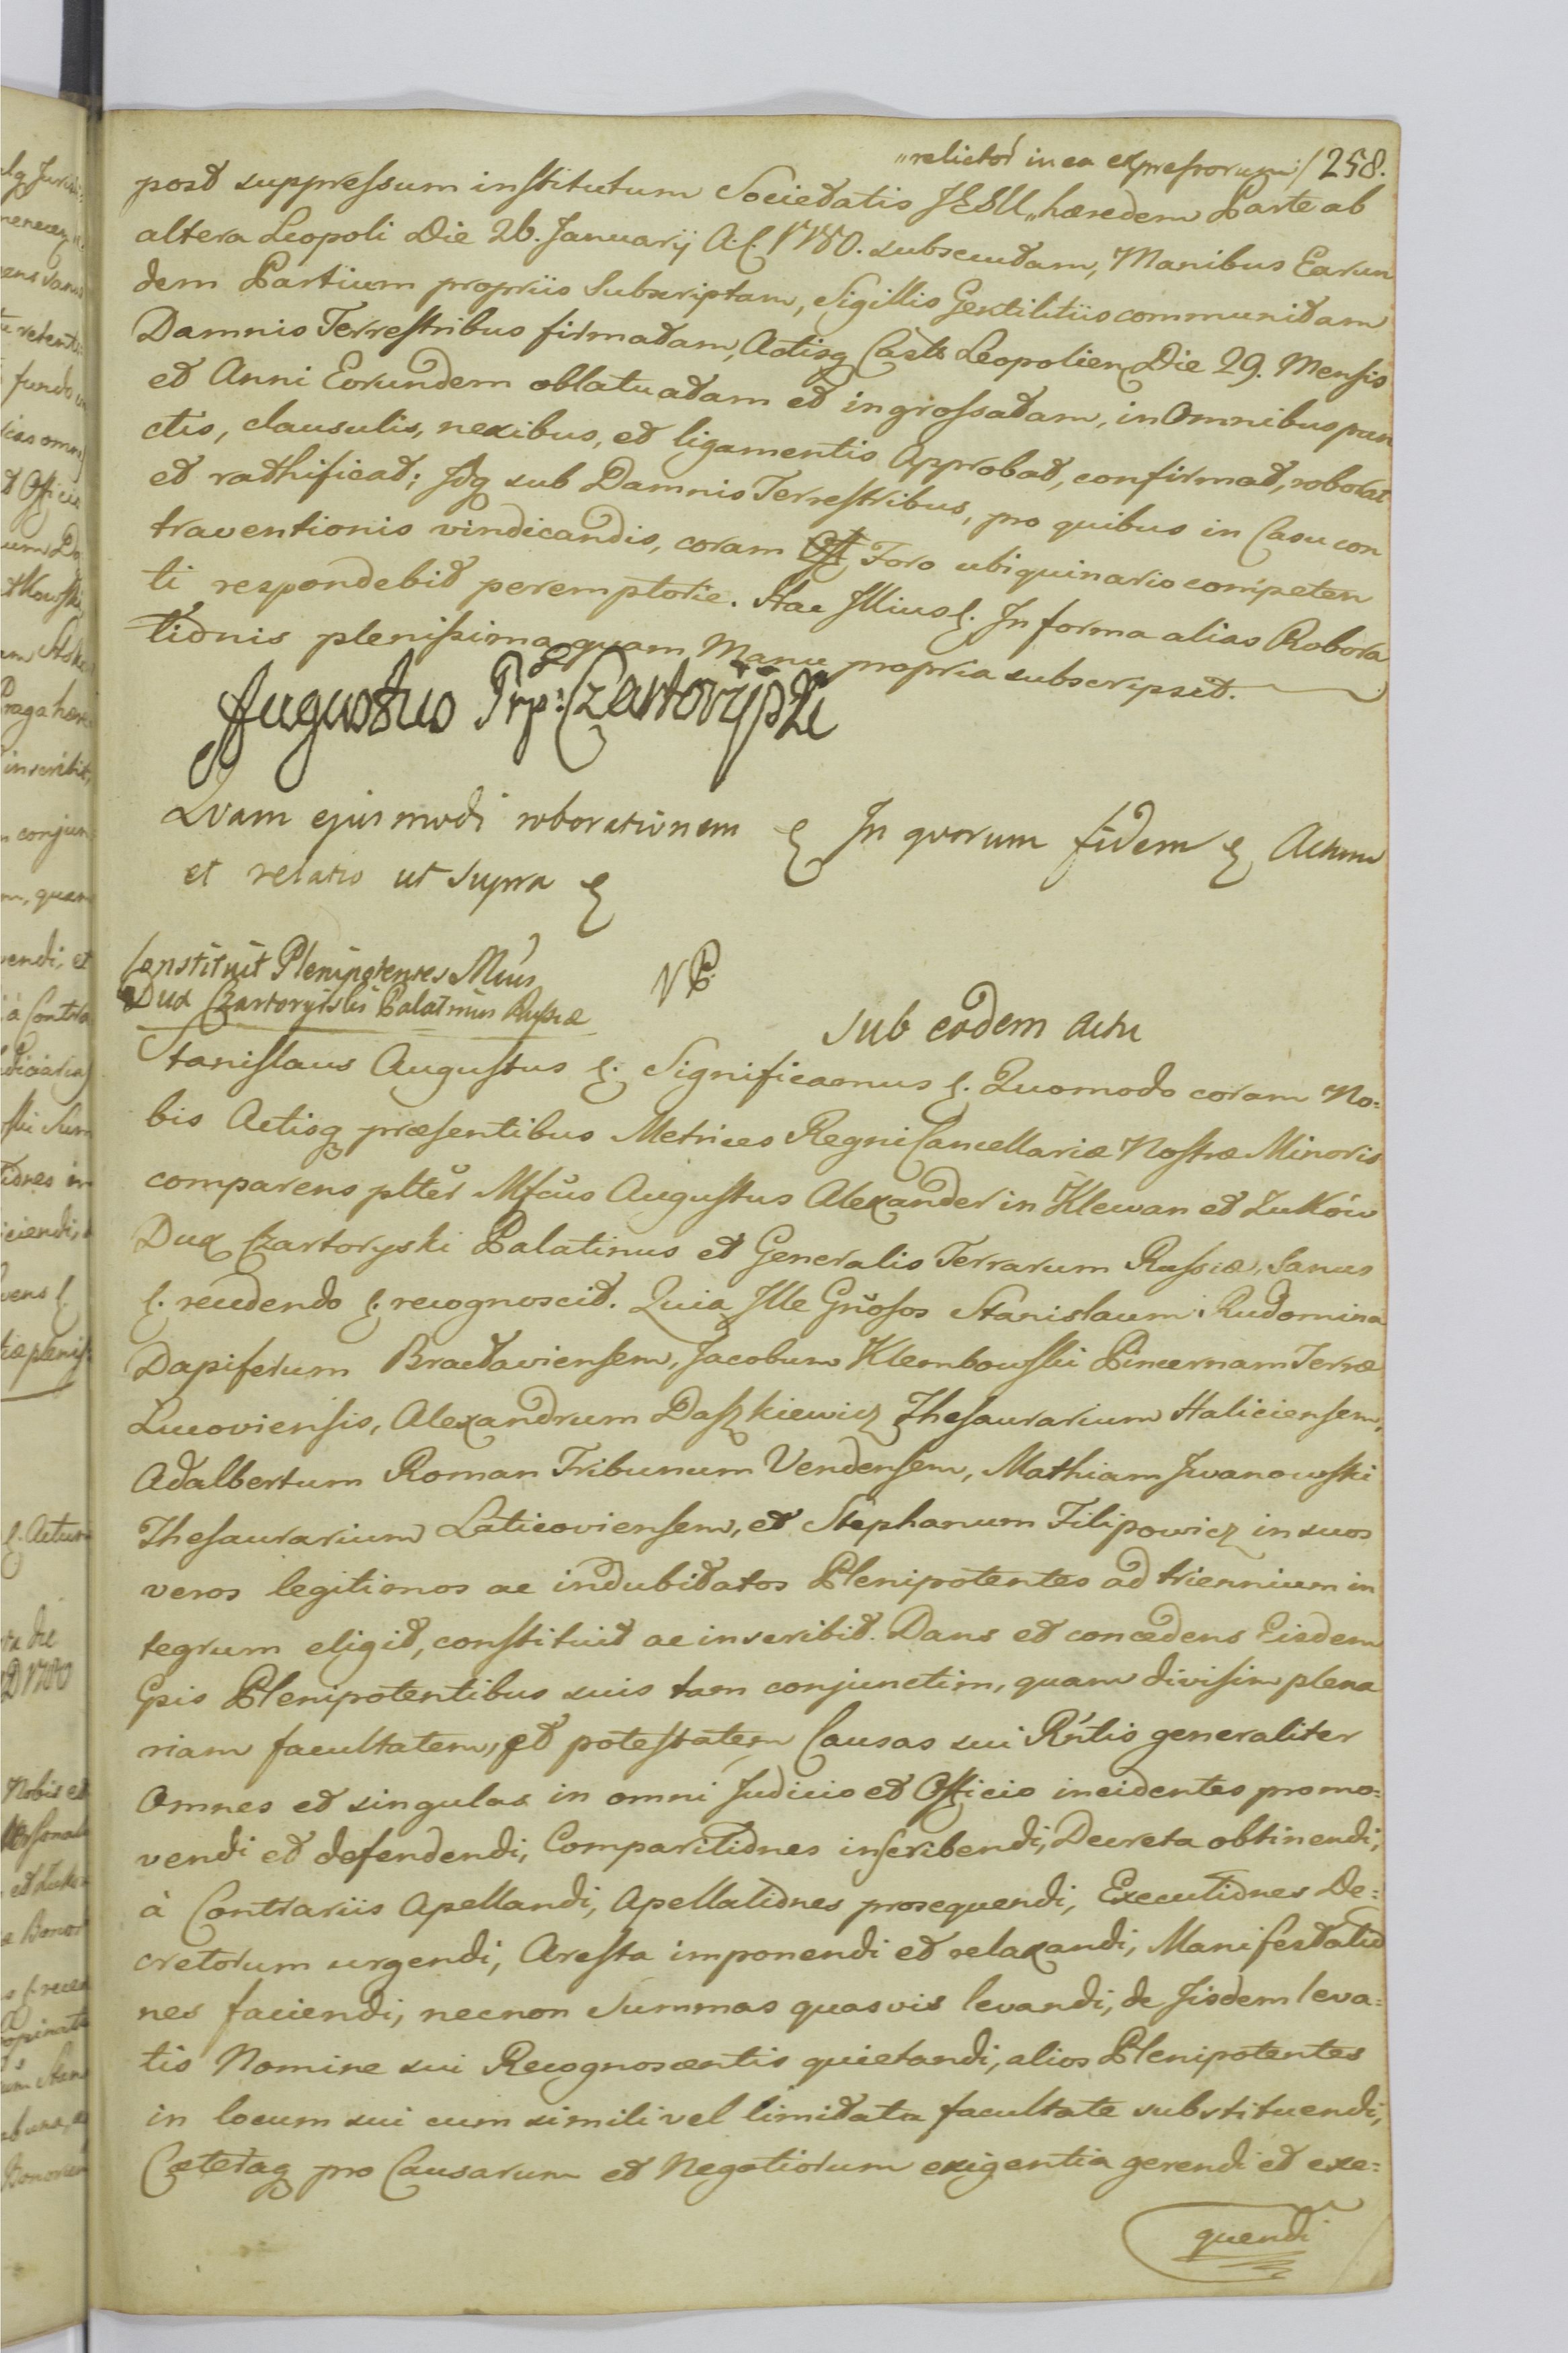 „relictor̃ in ea expressorum:/ 258.
post suppressum institutum Societatis JESU „hæredem Parte ab
altera Leopoli Die 26. Januarij A: C. 1780. subsecutam, Manibus Earun
dem Partium propriis Subscriptam, Sigillis Gentilitiis communitam
Damnis Terrestribus firmatam, Actisq Casts Leopolien Die 29. Mensis
et Anni Eorundem oblatuatam et ingrossatam, in Omnibus pun
ctis, clausulis, nexibus, et ligamentis Approbat, confirmat, roborat
et rathificat; Idq sub Damnis Terrestribus, pro quibus in Casu con
traventionis vindicandis, coram Foro ubiquinario competen
ti respondebit peremptorie. Hac Illius &. In forma alias Robora
tionis plenissima quam Manu propria subscripsit.
Augustus Czartoryski
Quam ejusmodi roborationem & In quorum fidem & Actum
et relatio ut supra &
Constituit Plenipotentes Mcus
Dux Czartoryiski Palatinus Russiæ
sub eodem Actu
Stanislaus Augustus &. Significamus &. Quomodo coram No:
bis Actisq præsentibus Metrices Regni Cancellariæ Nostræ Minoris
comparens plter Mfcus Augustus Alexander in Klewan et Zuków
Dux Czartoryski Palatinus et Generalis Terrarum Russiæ, Sanus
&. recedendo &. recognoscit. Quia Ille Gñosos Stanislaum Rudomina
Dapiferum Bractaviensem, Jacobum Klembowski Pincernam Terræ
Lucoviensis, Alexandrum Daszkiewicz Thesaurarium Haliciensem,
Adalbertum Roman Tribunum Vendensem, Mathiam Iwanowski
Thesaurarium Laticoviensem, et Stephanum Filipowicz in suos
veros legitimos ac indubitatos Plenipotentes ad triennium in
tegrum eligit, constituit ac inscribit. Dans et concedens Eisdem
Gsis Plenipotentibus suis tam conjunctim, quam divisim plena
riam facultatem, et potestatem Causas sui Rntis generaliter
Omnes et singulas in omni Judicio et Officio incidentes promo:
vendi et defendendi, Comparitiones inscribendi, Decreta obtinendi,
à Contrariis Apellandi, Apellationes prosequendi, Executiones De:
cretorum urgendi, Aresta imponendi et relaxandi, Manifestatio
nes faciendi, necnon Summas quasvis levandi, de Iisdem leva:
tis Nomine sui Recognoscentis quietandi, alios Plenipotentes
in locum sui cum simili vel limitata facultate substituendi,
Cæteraq pro Causarum et Negotiorum exigentia gerendi et exe:
quendi